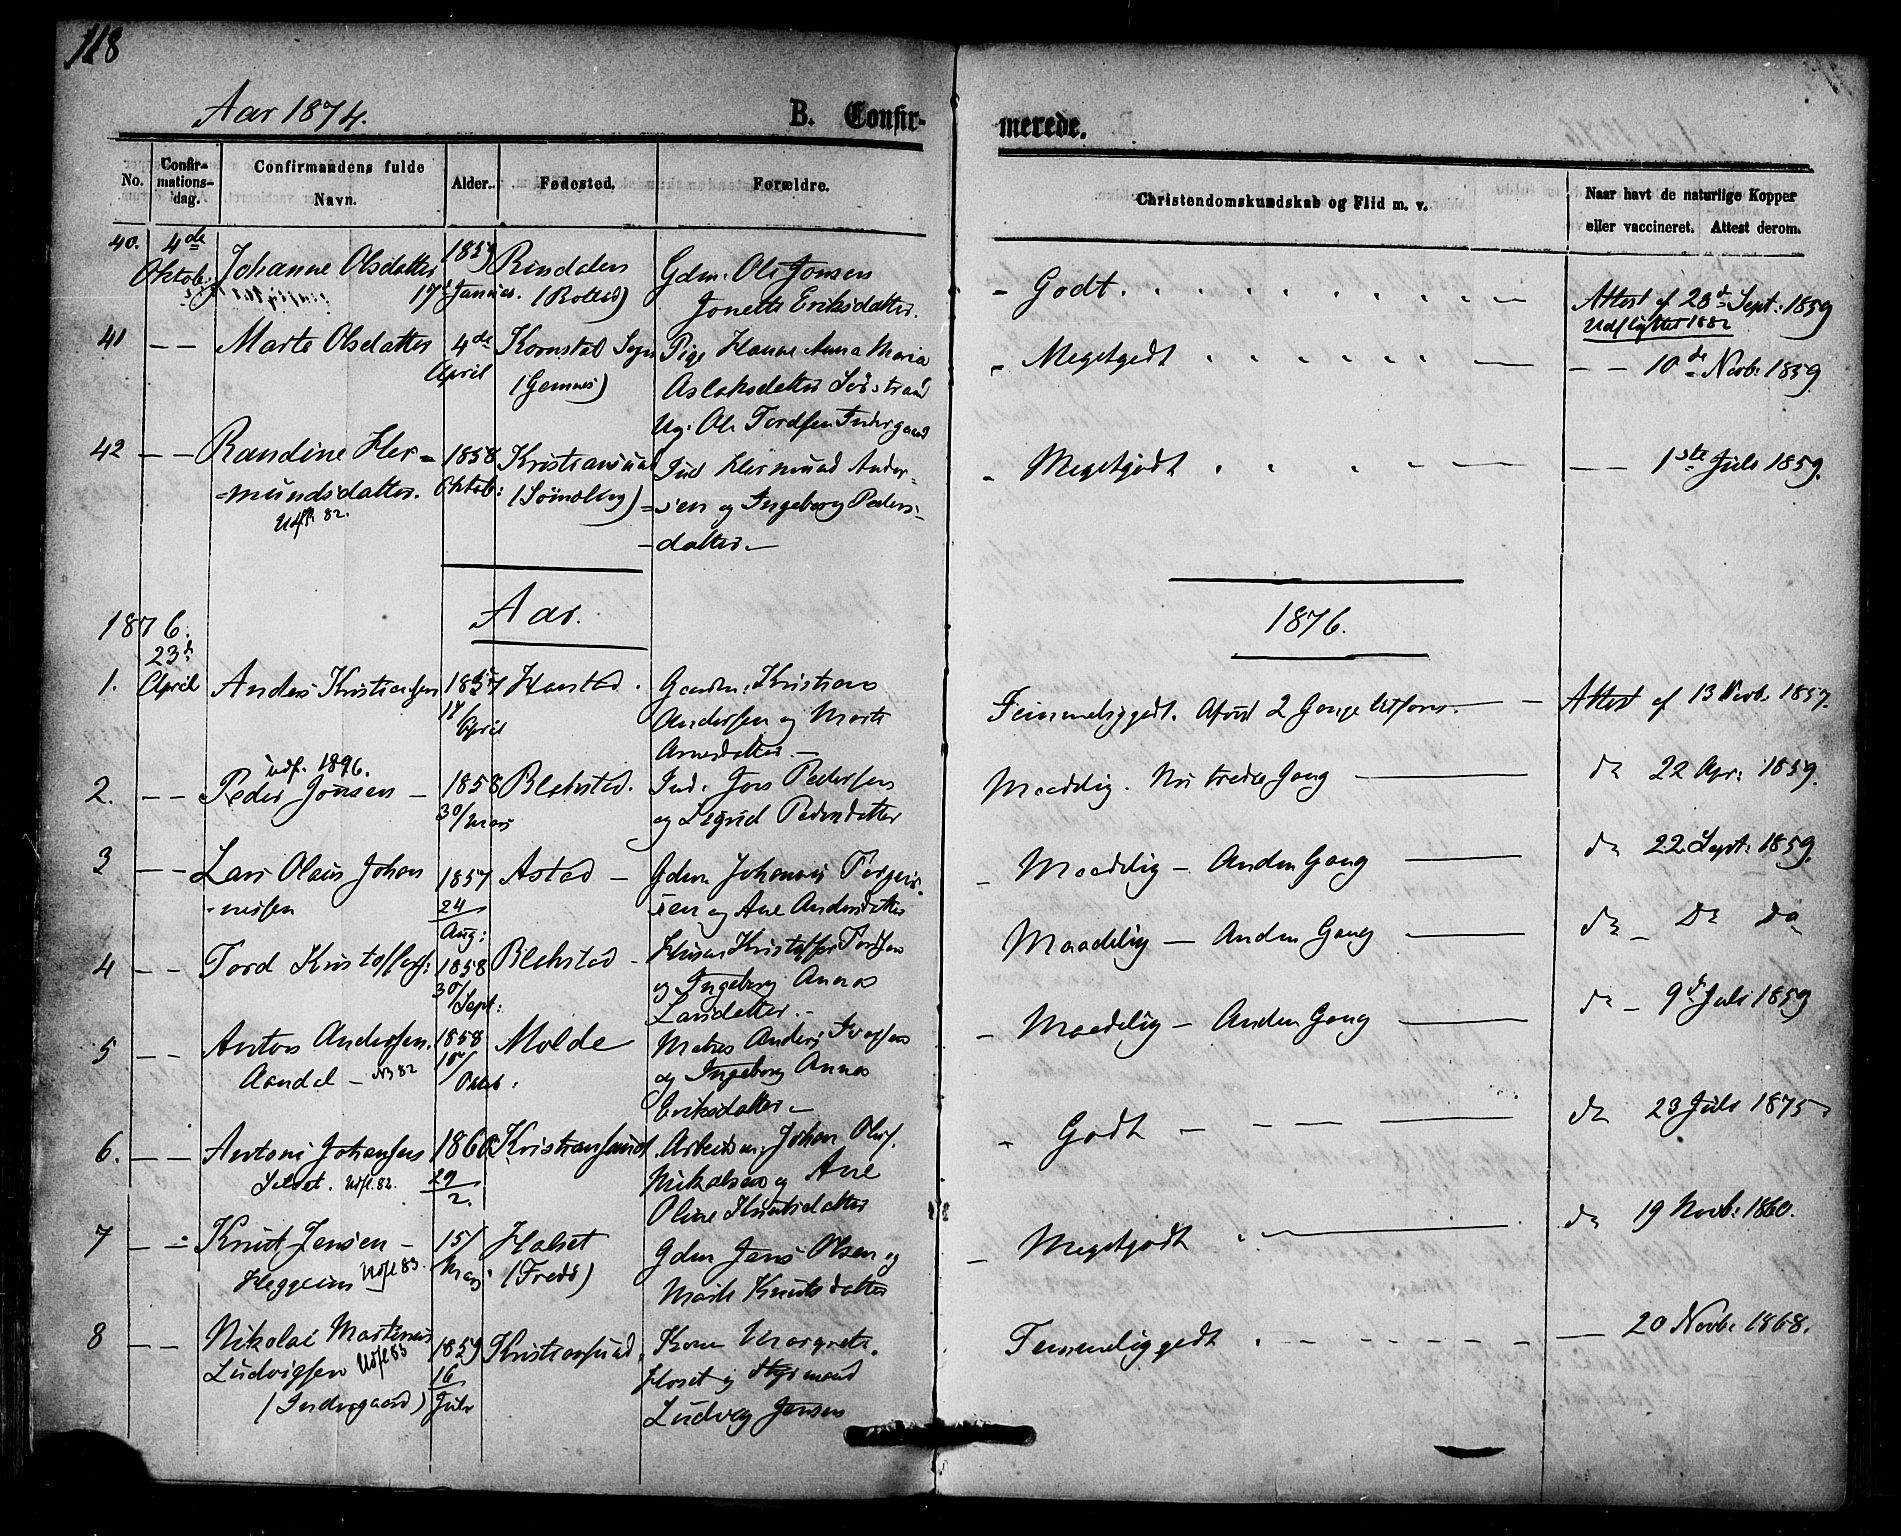 118
Aar 1874.
B. Confir-
merede.
No.
Confir-
mations-
dag.
Confirmandens fulde
Navn.
Alder.
Fødested.
Forældre.
Christendomskundskab og Flid m. v.
Naar havt de naturlige Kopper
eller vaccineret. Attest derom.
40. 4de Oktob: Johanne Olsdatter 1859 17de Januar. Rindalen Gdm. Ole Jonsen
Jonette Eriksdatter.
Godt.
Attest af 28de Sept: 1859
Udflyttet 1882
41 — — Marte Olsdatter 4de April Kornstad Sogn Pige Hanne Anna Maria
Aslaksdatter
Ug. Ole Tordsen Indergaard
Megetgodt — — 10de Novb. 1859
42 — — Randine Her=
=mundsdatter. 1858 Oktob: Kristiansund Ind. Hermund Ander-
=sen og Ingeborg Peders-
-datter.
Udfl. 82.
Megetgodt — — 1ste Juli 1859.
Aar.
1876.
1876.
1. 23de April Anders Kristiansen 1857 April Harstad. Gaardm. Kristian
Andersen og Marte
Arnesdatter
Temmeliggodt. 2 Gange — Attest af 13 Novb. 1857.
udf. 1896.
2. — — Peder Jonsen — 1858 30/Mars Blekstad. Ind. Jon Pedersen
og Sigrid Pedersdatter
Maadelig. Nu tredie Gang — do 22 Apr: 1859.
3 — — Lars Olaus Johan
-nessen 1857 24 Aug: Astad — Gdm. Johannes Torgeir-
sen og Ane Andersdatter
Maadelig — Anden Gang — do 22 Sept: 1859.
4 — — Tord Kristoffers: 1858 30/Sept: Blekstad — Kristoffer Tordsen
og Ingeborg Anna
Larsdatter. —
Maadelig — Anden Gang — do — Do Do
5 — — Anton Andersen.
Aandal — 1858 Oktob: Molde Anders Iversen
og Ingeborg Anna
Eriksdatter —
Maadelig — Anden Gang — do — 9de Juli 1859
6. — — Antoni Johansen
Udfl. 82. 1860 29/2. Kristiansund Arbeidsm. Johan Oluf.
Nikolsen og Ane
Oline Knutsdatter
Godt — do 23 Juli 1875
7 — — Knut Jensen —
Heggeim Udfl 83. 15/Mars Halset
(Fredø) Gdm Jens Olsen og
Marit Knutsdatter
Megetgodt — do 19 Novb. 1860.
8 — — Nikolai Martinus
Ludvigsen Udfl 83
(Indergaard) 1859 16 Juli Kristiansund. Kone Margrete
Hoset og Styrmand
Ludvig Jensen
Temmeliggodt — 20 Novb. 1868.